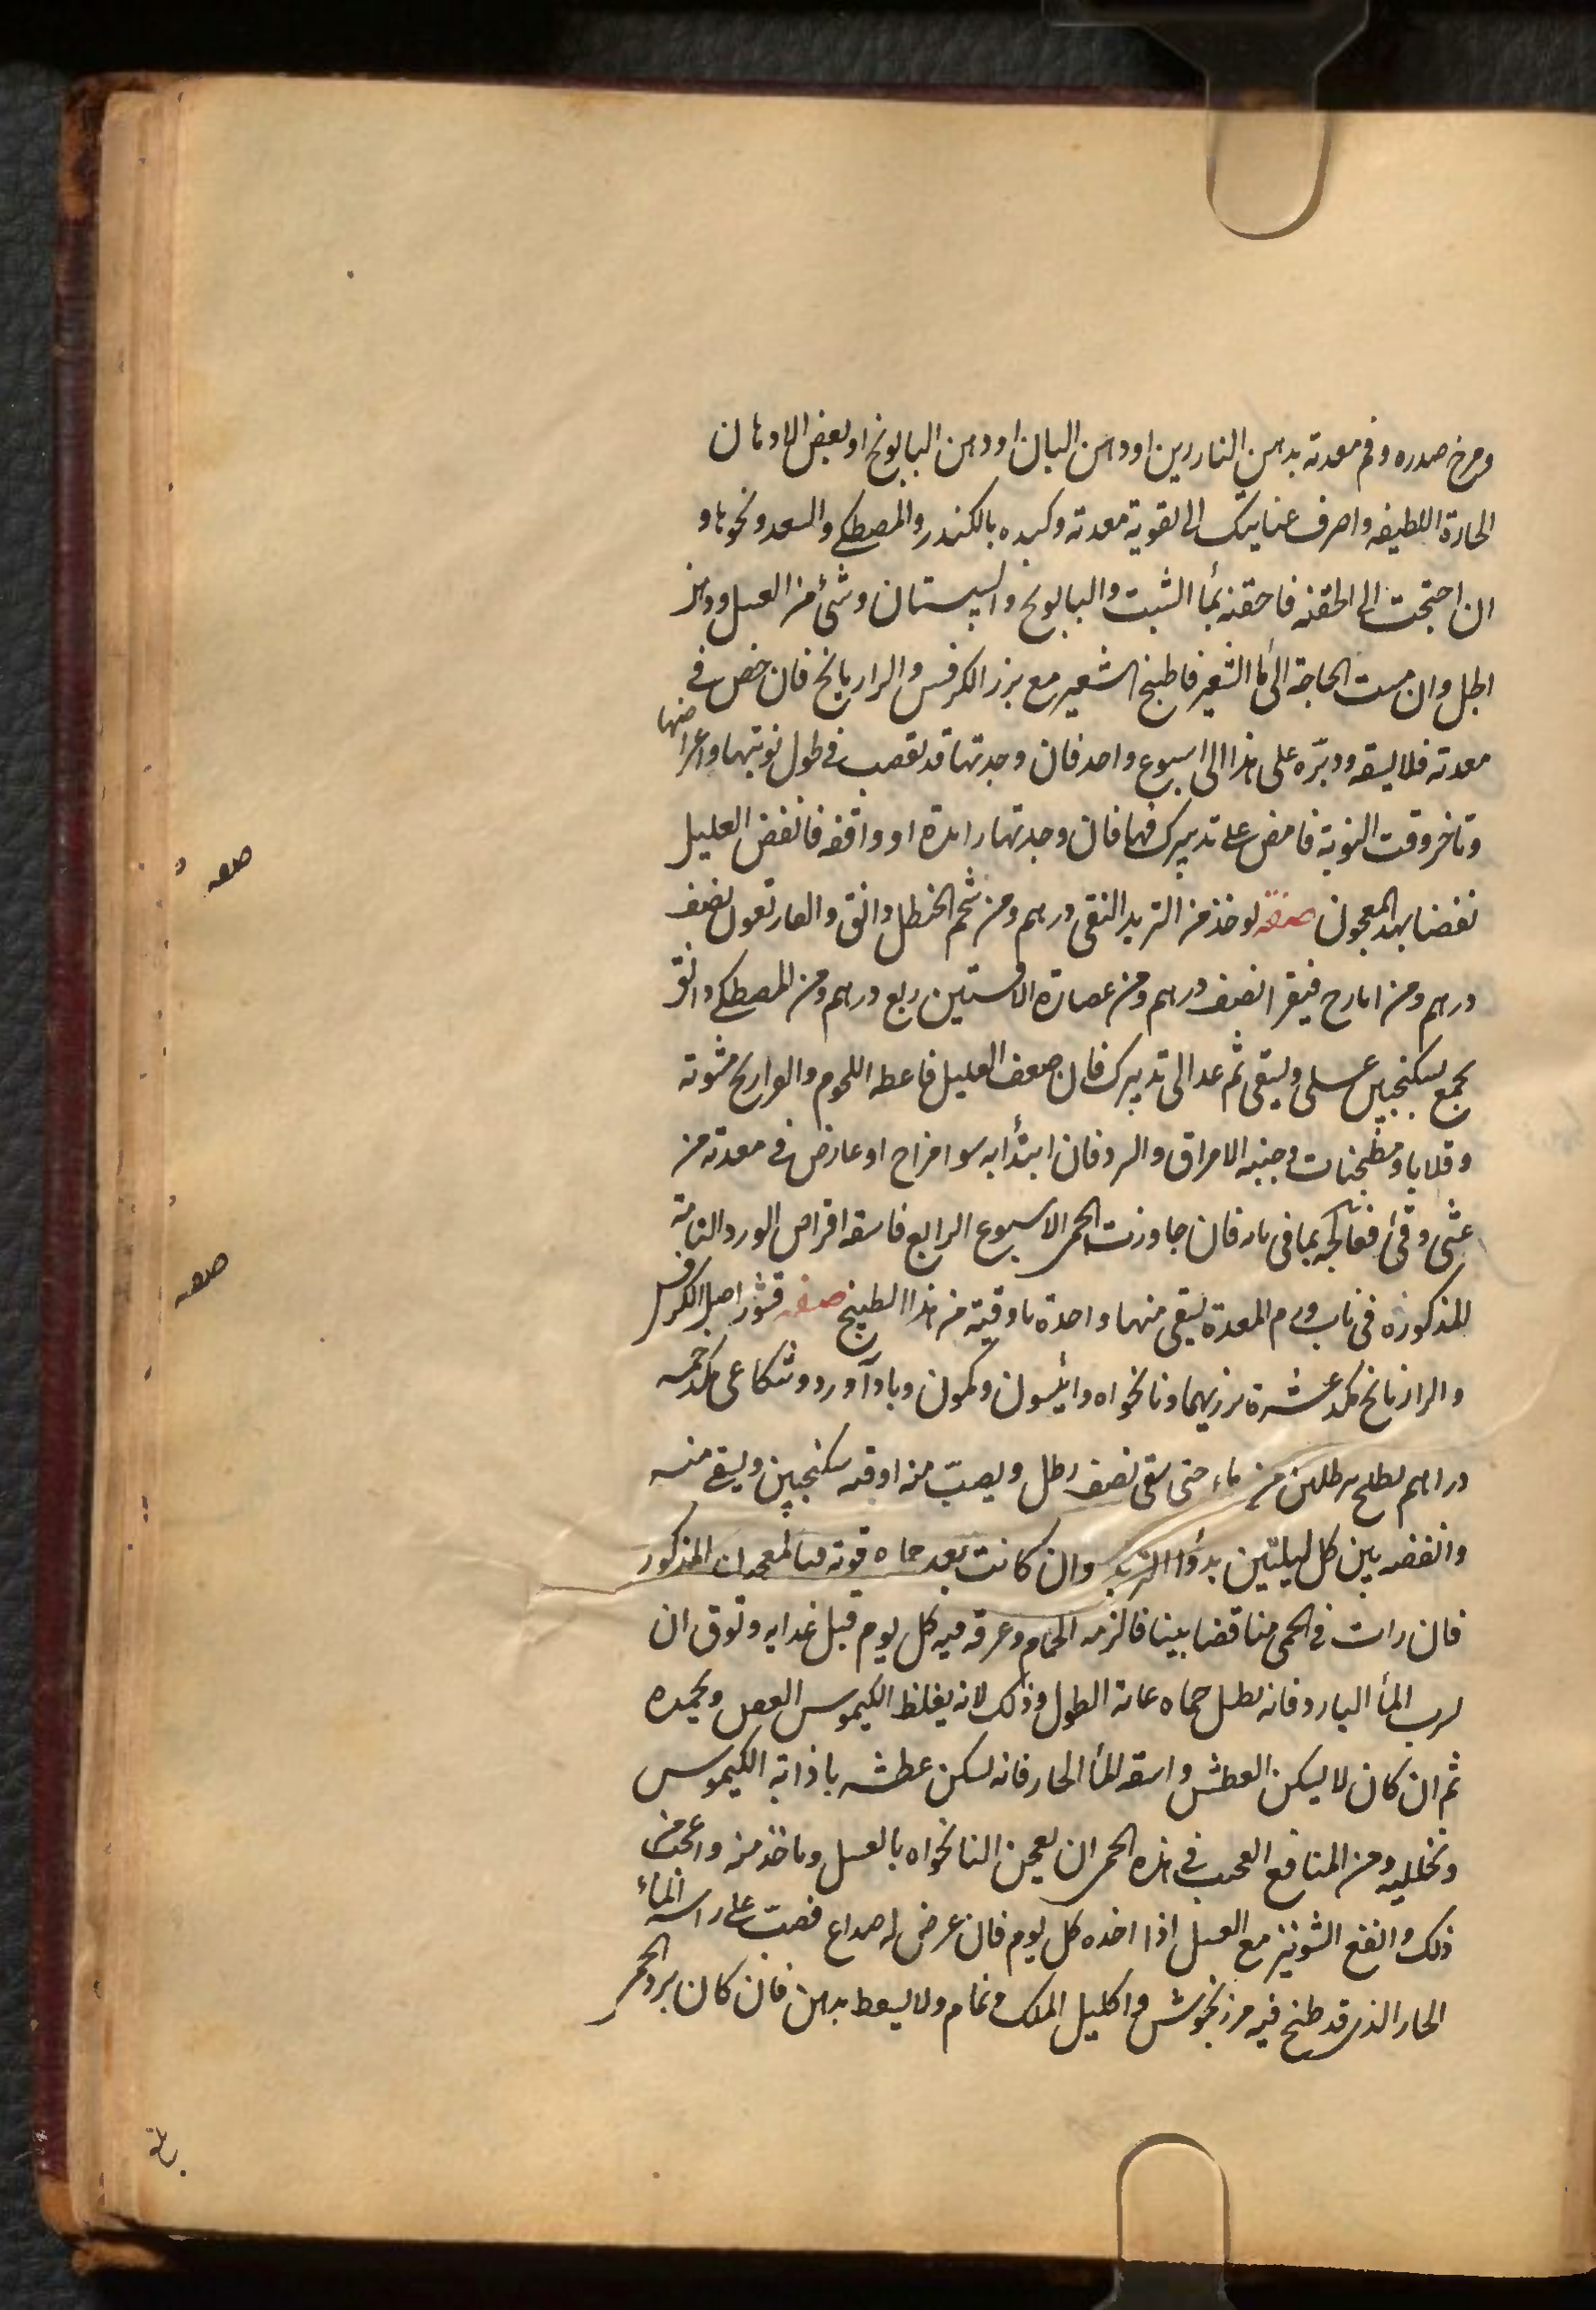 ومرخ صدره وفم معدته بدهن الناردين او دهن البان او دهن البابونج او بعض الادهان
الحارة اللطيفه واصرف عنايتك الى تقوية معدته وكبده بالكندر والمصطكى والسعد ونحوها و
ان احتجت الى الحقنه فاحقنه بمأ الشبت والبابونج والسپستان وشئ من العسل ودهن
الحل وان مست الحاجة الى مأ الشعير فاطبخ الشعير مع بزر الكرفس والرازيانج فان حمض في
معدته فلا يسقه ودبّره على هذا الى اسبوع واحد فان وجدتها قد نقصت في طول نوبتها واعراضها
وتاخر وقت النوبة فامض على تدبيرك فيها فان وجدتها زايدة او واقفه فانفض العليل
نفضا بهذا المعجون صفته يوخذ من التربد النقى درهم ومن شحم الحنظل دانق والغاريقون نصف
درهم ومن ايارج فيقرا نصف درهم ومن عصارة الافسنتين ربع درهم ومن المصطكى دانق
يجمع بسكنجبين عسلى ويسقى ثم عد الى تدبيرك فان ضعف العليل فاعطه اللحوم والفراريج مشوية
وقلايا ومطجنات وجنبه الامراق والبرد فان ابتدأ به سو امزاج او عارض في معدته من
غثى وقئ فعالجه بما في بابه فان جاوزت الحمى الاسبوع الرابع فاسقه اقراص الورد التامة
المذكورة في باب ورم المعدة يسقى منها واحدة باوقية من هذا الطبيخ صفته قشور اصل الكرفس
والرازيانج مكد عشرة بزريهما ونانخواه وانيسون وكمون وبادآورد وشكاعى مكد خمسه
دراهم يطبخ برطلين من ماء حتى يبقى نصف رطل ويصبّ منه اوقيه سكنجبين ويسقى منه
وانفضه بين كل ليلتين بدوأ التربد وان كانت بعد حماه قوته فبالمعجون المذكور
فان رات في الحمى مناقضا بينا فالزمه الحمام وعرقه فيه كل يوم قبل غدايه وتوق ان
يشرب المأ البارد فانه يطيل حماه غاية الطول وذلك لانه يغلظ الكيموس العفن ويجمده
ثم ان كان لا يسكن العطش واسقه المأ الحار فانه يسكن عطشه باذابة الكيموس
وتحليله ومن المنافع العجب في هذه الحمى ان يعجن النانخواه بالعسل وياخذ منه واعجب من
ذلك وانفع الشونيز مع العسل اذا اخذه كل يوم فان عرض له صداع فصبّ على راسه المأ
الحار الذى قد طبخ فيه مرزنجوش واكليل الملك ونمام ولا يسعط بدهن فان كان برد الحمى
صفه
صفه